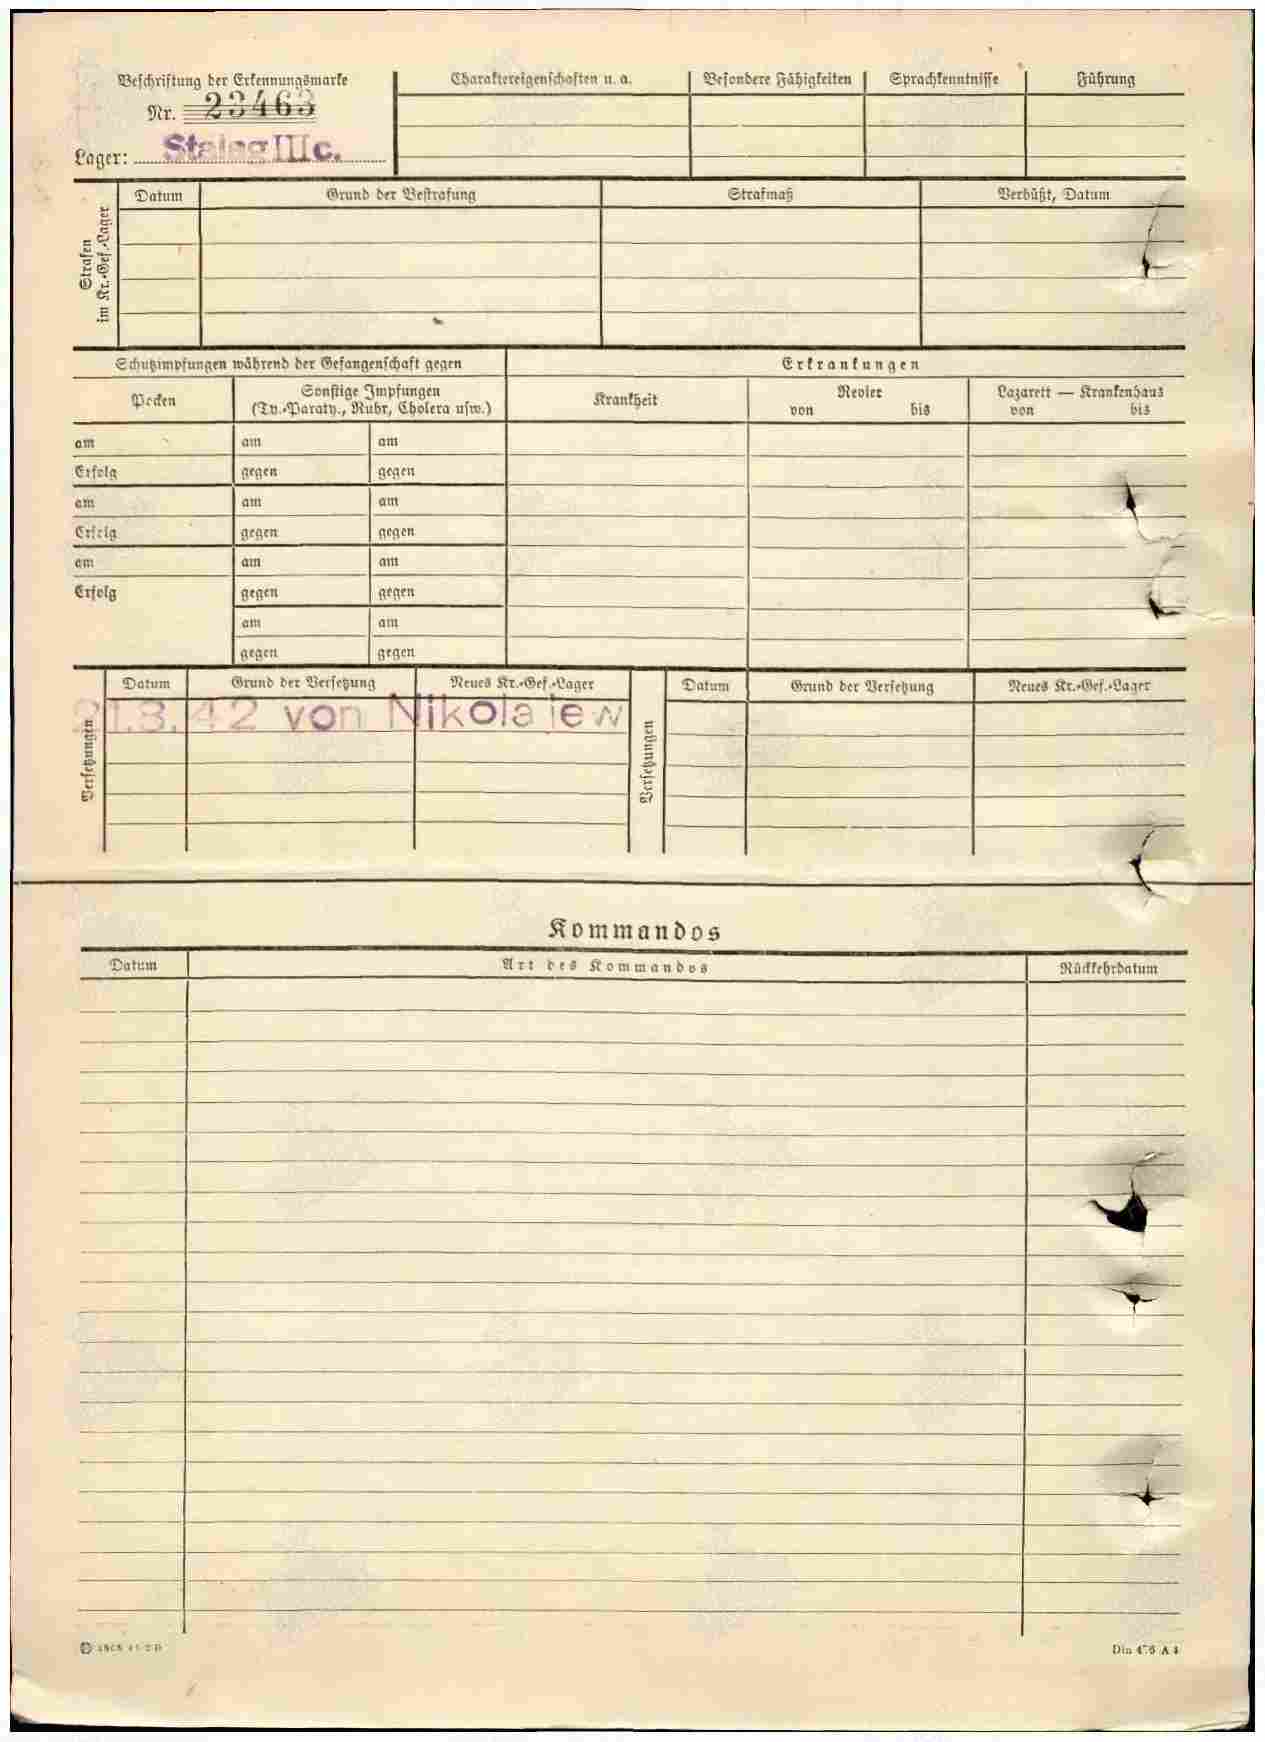 Beschriftung der Erkennungsmarke
Nr. 23463
Lager: Stalag III c.
Charaktereigenschaften u. a.
Besondere Fähigkeiten
Sprachkenntnisse
Führung
Strafen
im Kr.-Gef.-Lager
Datum
Grund der Bestrafung
Strafmaß
Verbüßt, Datum
Schutzimpfungen während der Gefangenschaft gegen
Erkrankungen
Pocken
Sonstige Impfungen
(Ty.-Paraty., Ruhr, Cholera usw.)
Krankheit
Revier
von bis
Lazarett — Krankenhaus
von bis
am am am
Erfolg gegen gegen
am am am
Erfolg gegen gegen
am am am
Erfolg gegen gegen
am am
gegen gegen
Versetzungen
Datum
Grund der Versetzung
Neues Kr.-Gef.-Lager
21.3.42 von Nikolajew
Versetzungen
Datum
Grund der Versetzung
Neues Kr.-Gef.-Lager
Kommandos
Datum
Art des Kommandos
Rückkehrdatum
Din 476 A 4